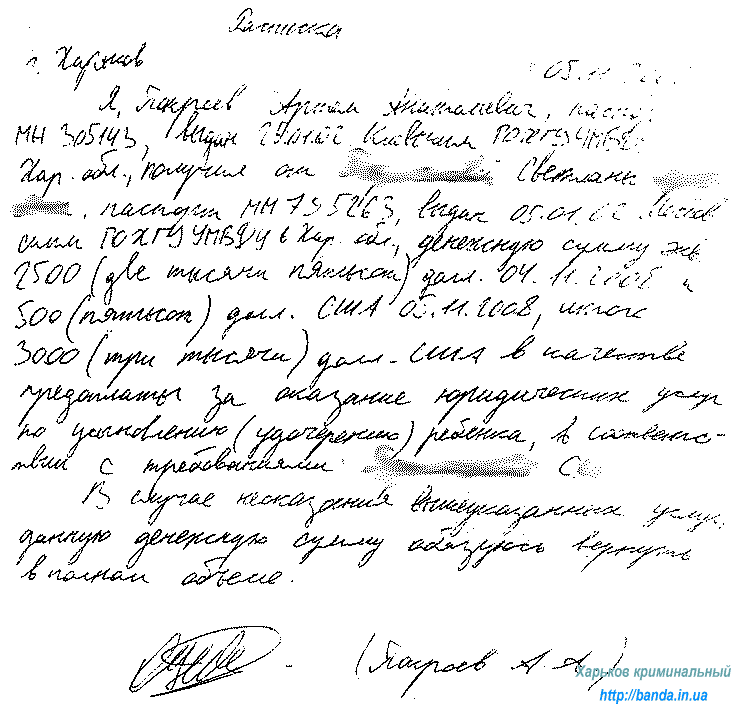 Расписка
г. Харьков 05.11.200
Я, Артем Анатолиевич, паспо
МН 305143, выдан 29.01.02 Киевским ГОХГУУМВДУ
Хар. обл., получил от Светланы
паспорт МН 735263, выдан 05.01.02
ским ГОХГУУМВДУ в Хар. обл., денежную сумму экв.
2500 (две тысячи пятьсот) долл. 04.11.2008 и
500 (пятьсот) долл. США 05.11.2008, итого
3000 (три тысячи) долл. США в качестве
предоплаты за оказание юридических услуг
по усыновлению (удочерению) ребенка, в соответс-
твии с требованиями С
В случае неоказания вышеуказанных услуг,
данную денежную сумму обязуюсь вернуть
в полном объеме.
А. А.)
Харьков криминальный
http://banda.in.ua